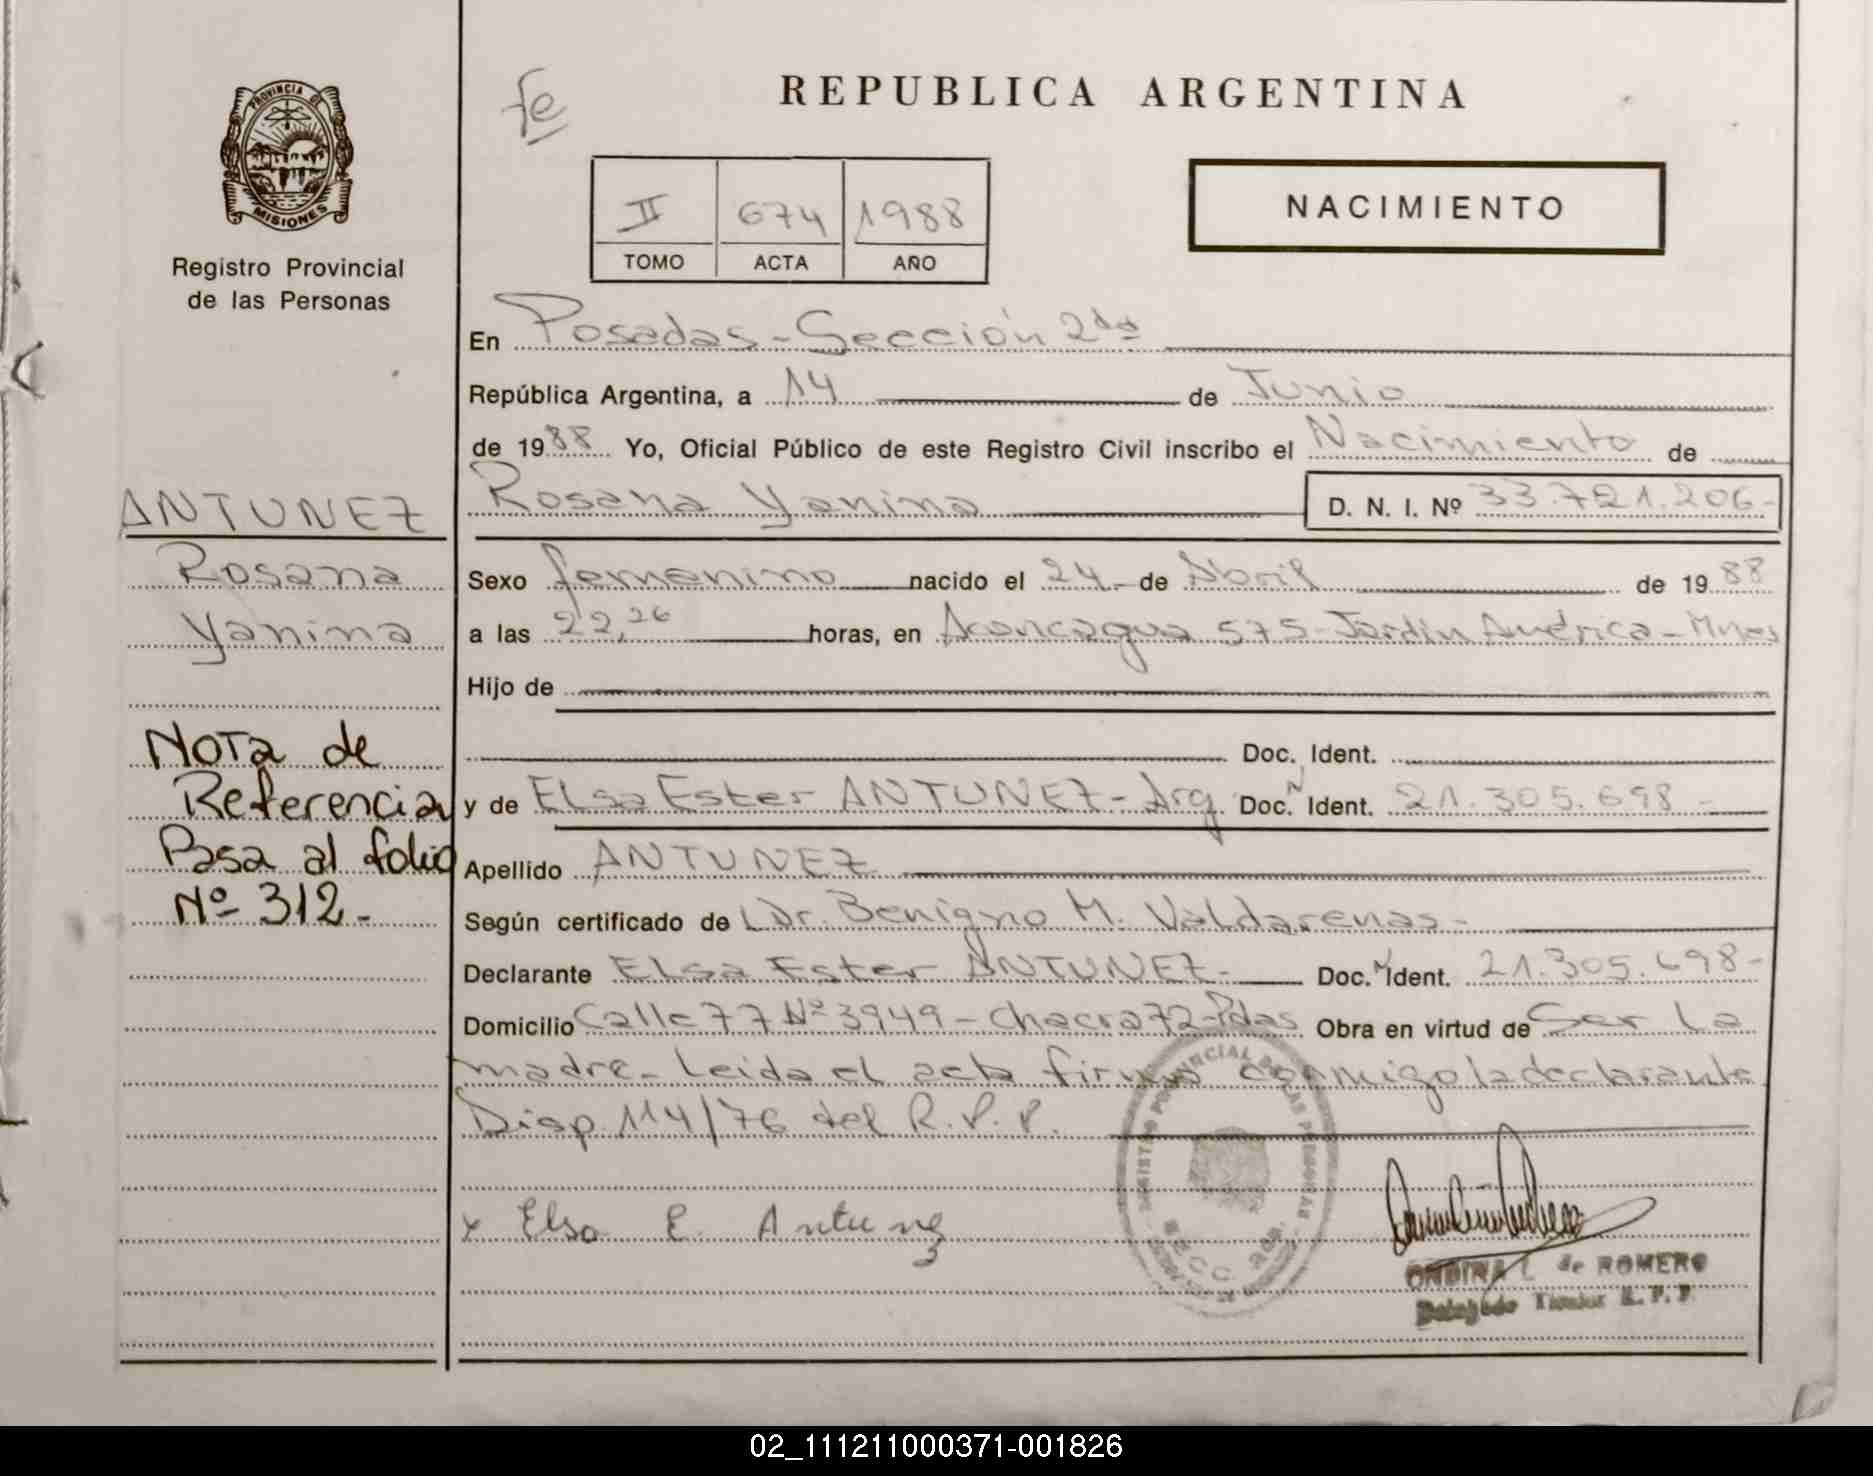 PROVINCIA DE
MISIONES
Registro Provincial
de las Personas
fe
REPUBLICA ARGENTINA
II 674 1988
TOMO ACTA AÑO
NACIMIENTO
En Posadas - Sección 2da
República Argentina, a 14 de Junio
de 1988 Yo, Oficial Público de este Registro Civil inscribo el Nacimiento de
Rosana Yanina D. N. I. Nº 33.721.206-
ANTUNEZ
Rosana
Yanina
Sexo femenino nacido el 24 de Abril de 1988
a las 22,26 horas, en Aconcagua 575 - Jardín América - Mnes
Hijo de
Doc. Ident.
y de ELsa Ester ANTUNEZ - Arg Doc. N Ident. 21.305.698 -
Apellido ANTUNEZ
Según certificado de Dr. Benigno M. Valdarenas -
Declarante ELsa Ester ANTUNEZ - Doc. N Ident. 21.305.698 -
Domicilio Calle 77 Nº 3949 - Chacra 72 - Pdas Obra en virtud de Ser La
madre - Leida el acta firma conmigo la declarante
Disp. 114/76 del R. P. P.
NOTA de
Referencia
Pasa al folio
Nº 312 -
x Elsa E. Antunez
REGISTRO PROVINCIAL DE LAS PERSONAS
SECC. 2da.
ONDINA L. de ROMERO
Delegado Titular R. P. P.
02_111211000371-001826